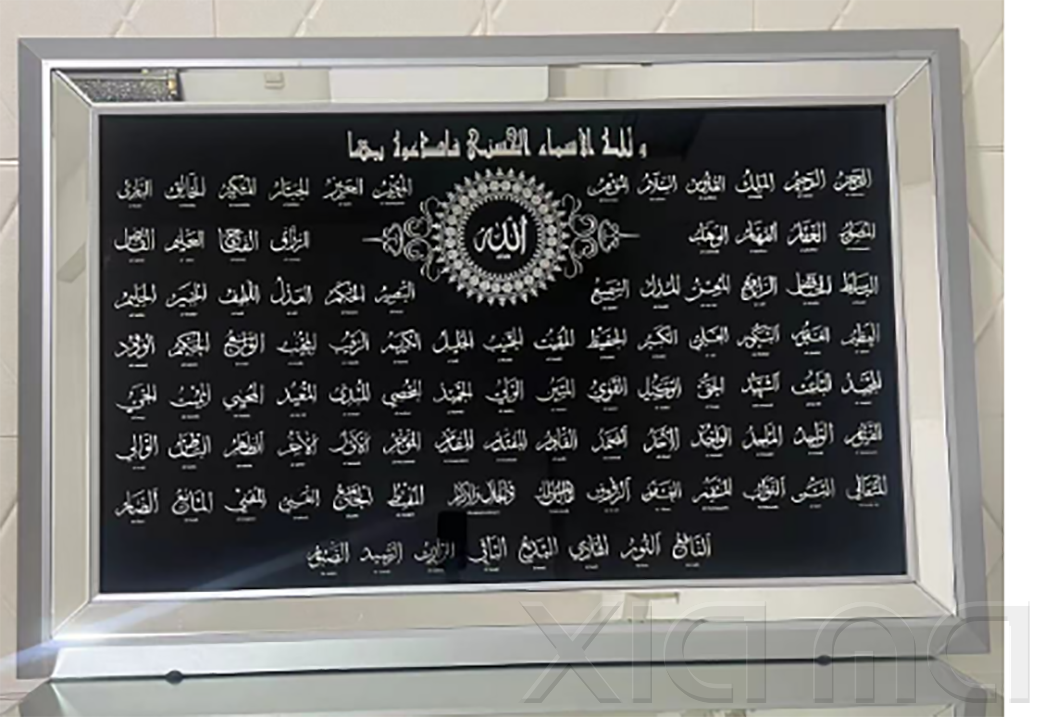 ولله الاسماء الحسنى فادعوه بها
الله
الرحمن الرحيم الملك القدوس السلام المؤمن المهيمن العزيز الجبار المتكبر الخالق البارئ
المصور الغفار القهار الوهاب الرزاق الفتاح العليم القابض
الباسط الخافض الرافع المعز المذل السميع البصير الحكم العدل اللطيف الخبير الحليم
العظيم الغفور الشكور العلي الكبير الحفيظ المقيت الحسيب الجليل الكريم الرقيب المجيب الواسع الحكيم الودود
المجيد الباعث الشهيد الحق الوكيل القوي المتين الولي الحميد المحصي المبدئ المعيد المحيي المميت الحي
القيوم الواجد الماجد الواحد الاحد الصمد القادر المقتدر المقدم المؤخر الأول الآخر الظاهر الباطن الوالي
المتعالي البر التواب المنتقم العفو الرؤوف مالك الملك ذو الجلال والإكرام المقسط الجامع الغني المغني المانع الضار
النافع النور الهادي البديع الباقي الوارث الرشيد الصبور
XIA MA